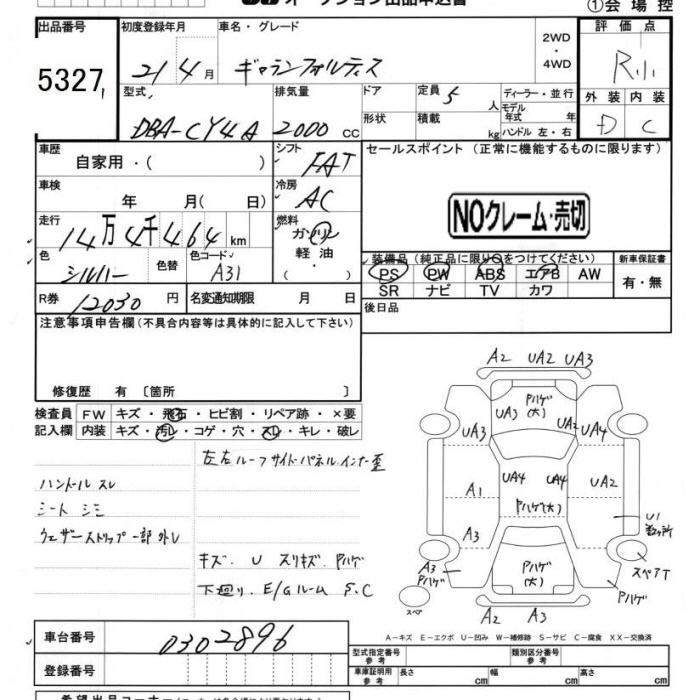 オークション出品申込書
①会 場 控
出品番号 初度登録年月 車名・グレード 評 価 点
5327 21 4 月 ギャランフォルティス 2WD ・ 4WD R小
型式 排気量 ドア 定員 5 人 ディーラー・並行 外 装 内 装
DBA-CY4A 2000 cc 形状 積載 kg モデル年式 年 ハンドル 左・右 D C
車歴 自家用・( ) シフト FAT セールスポイント (正常に機能するものに限ります)
車検 年 月( 日) 冷房 AC
NOクレーム・売切
走行 14万4千464 km 燃料 ガソリン 軽 油 ・
色 シルバー 色替 色コード A31
装備品(純正品に限り○をつけてください) 新車保証書
PS PW ABS エアB AW 有・無
SR ナビ TV カワ
R券 12030 円 名変通知期限 月 日 後日品
注意事項申告欄(不具合内容等は具体的に記入して下さい)
修復歴 有 〔箇所 〕
検査員 FW キズ・飛石・ヒビ割・リペア跡・×要
記入欄 内装 キズ・汚レ・コゲ・穴・スレ・キレ・破レ
左右ルーフサイドパネルインナー歪
ハンドル スレ
シート シミ
ウェザーストリップ一部外レ
キズ. U スリキズ. Pハゲ
下廻り. E/Gルーム S.C
A2 UA2 UA3
Pハゲ(大)
UA3 UA2
UA3 UA4
UA4 UA4
A1 UA2
Pハゲ(大)
A3 U1
A3 Pハゲ Pハゲ(大) スペアT
Pハゲ
スペア
A2 A3
A-キズ E-エクボ U-凹み W-補修跡 S-サビ C-腐食 XX-交換済
車台番号 0302896 型式指定番号 参考 類別区分番号 参考
登録番号 車庫証明用 参考 長さ cm 幅 cm 高さ cm